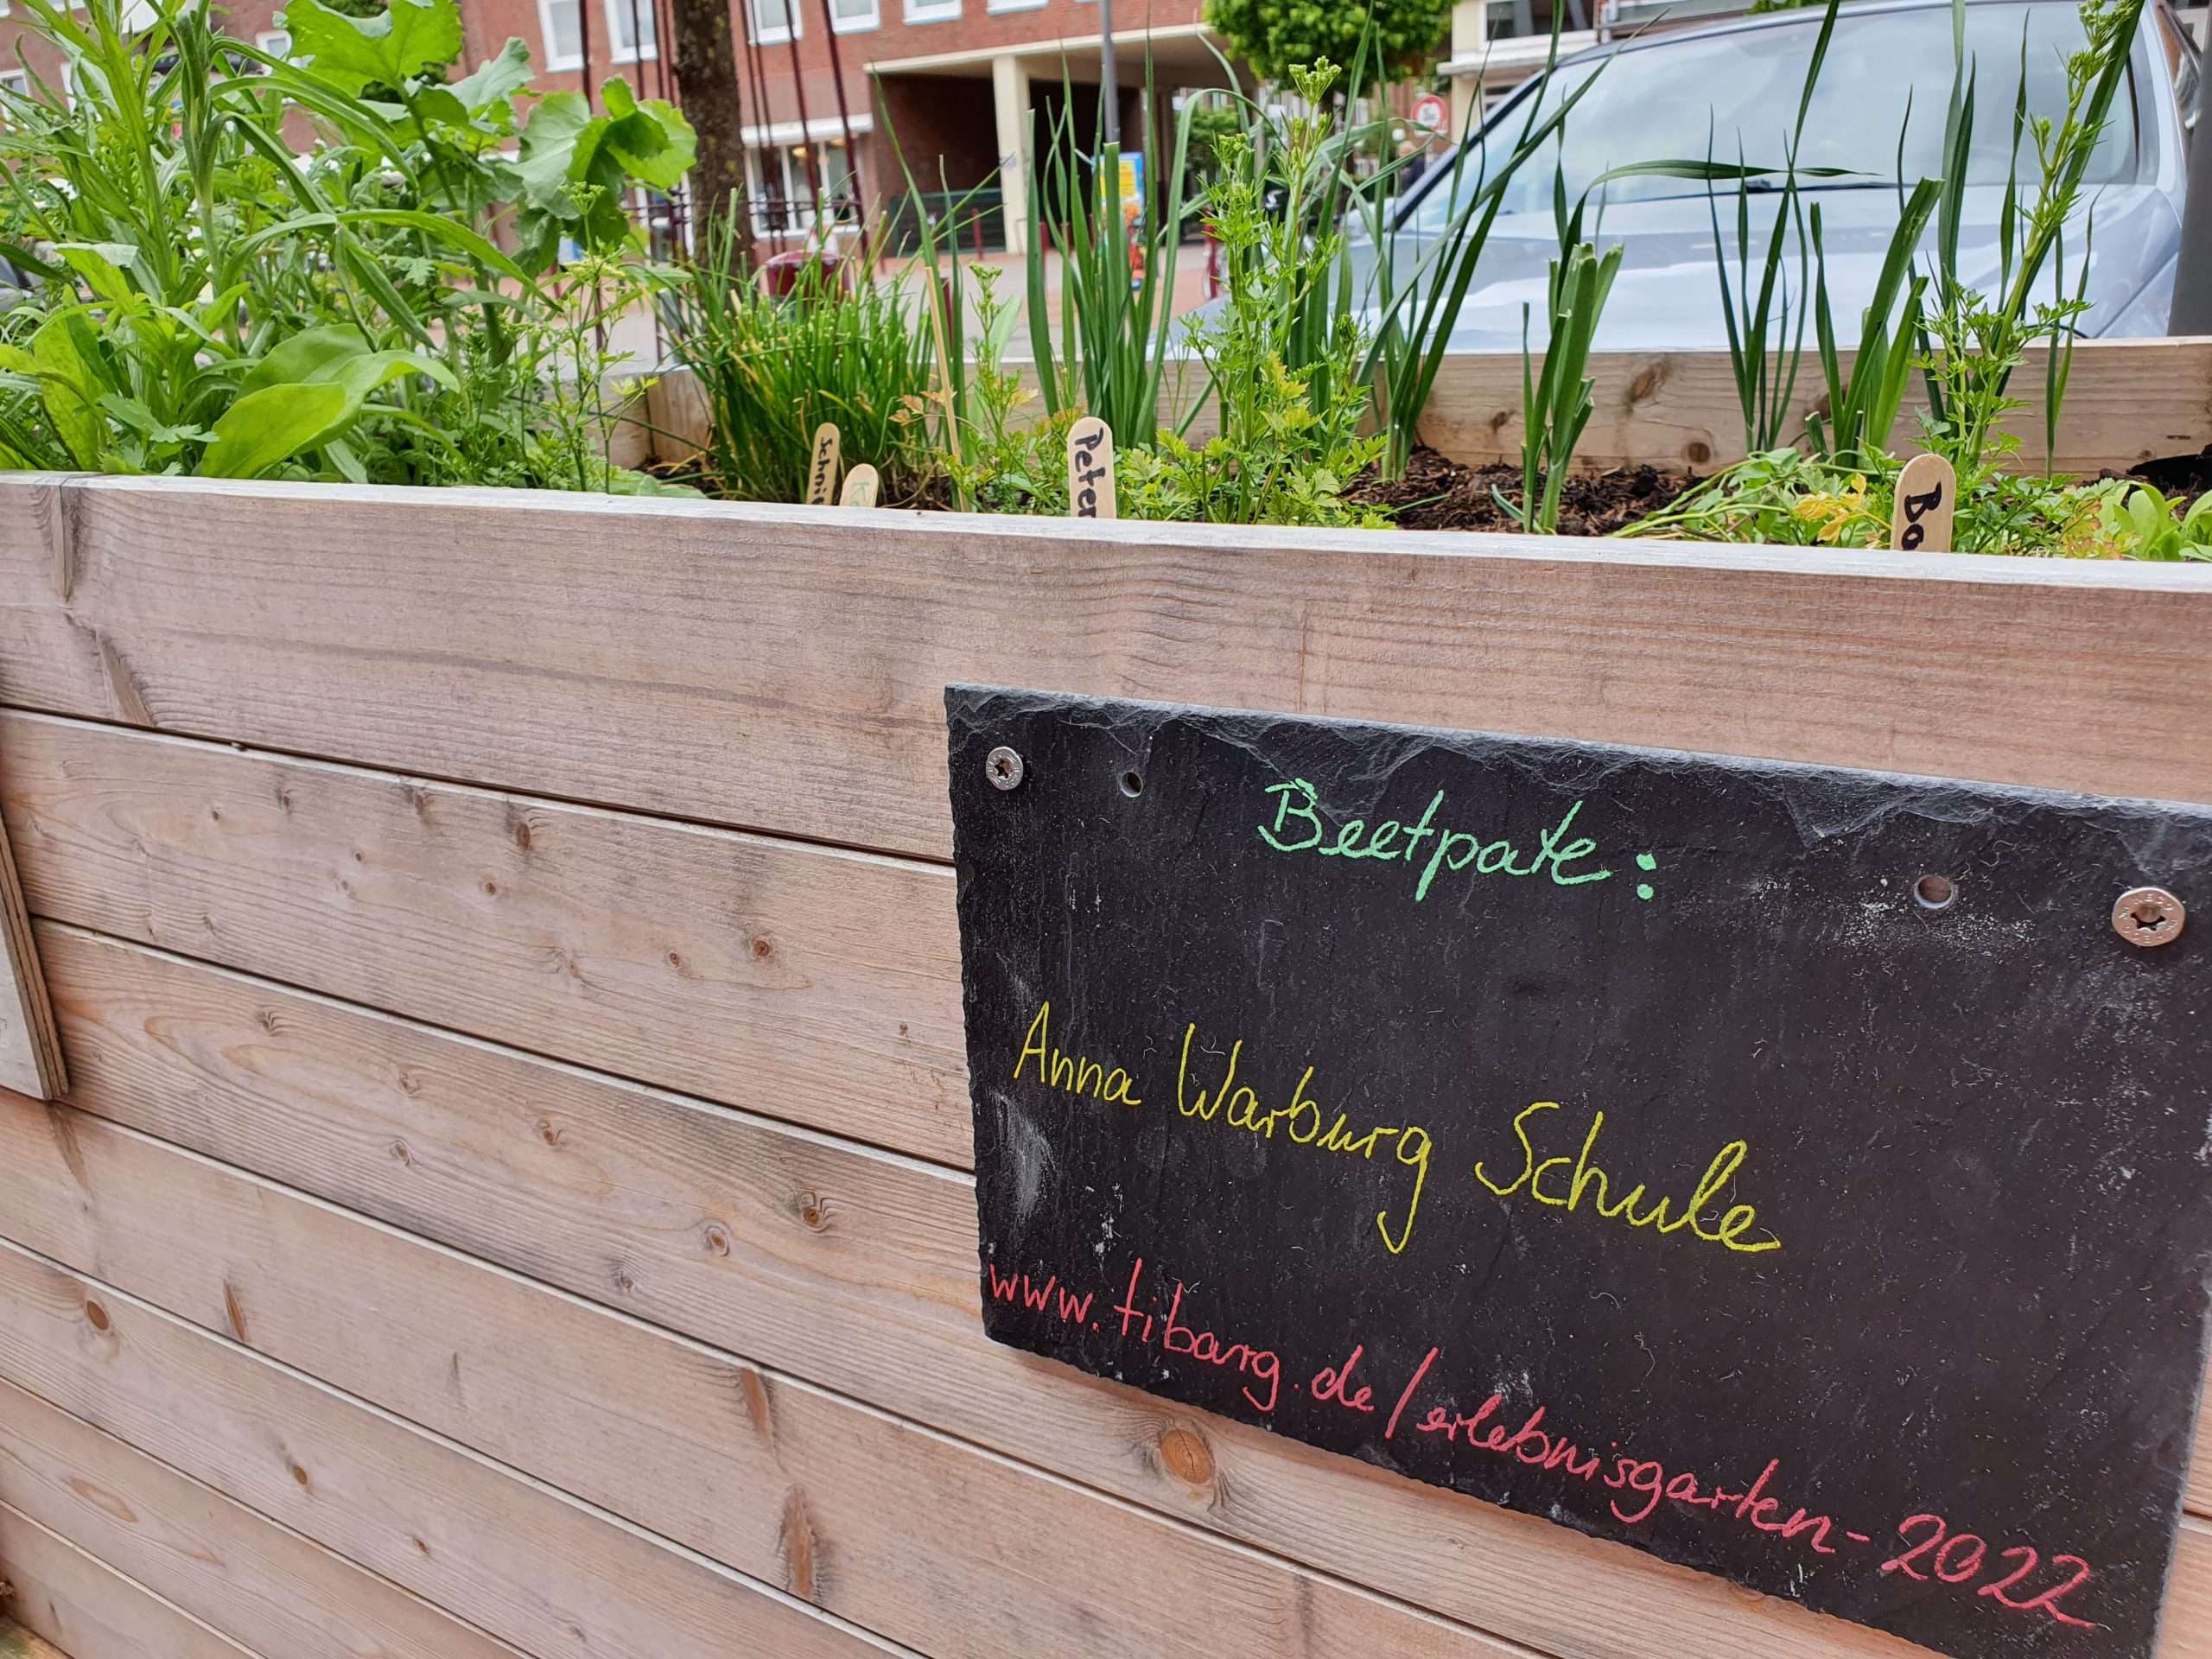 Beetpate:
Anna Warburg Schule
www.tibarg.de/erlebnisgarten-2022
Schni
Peter
Bo